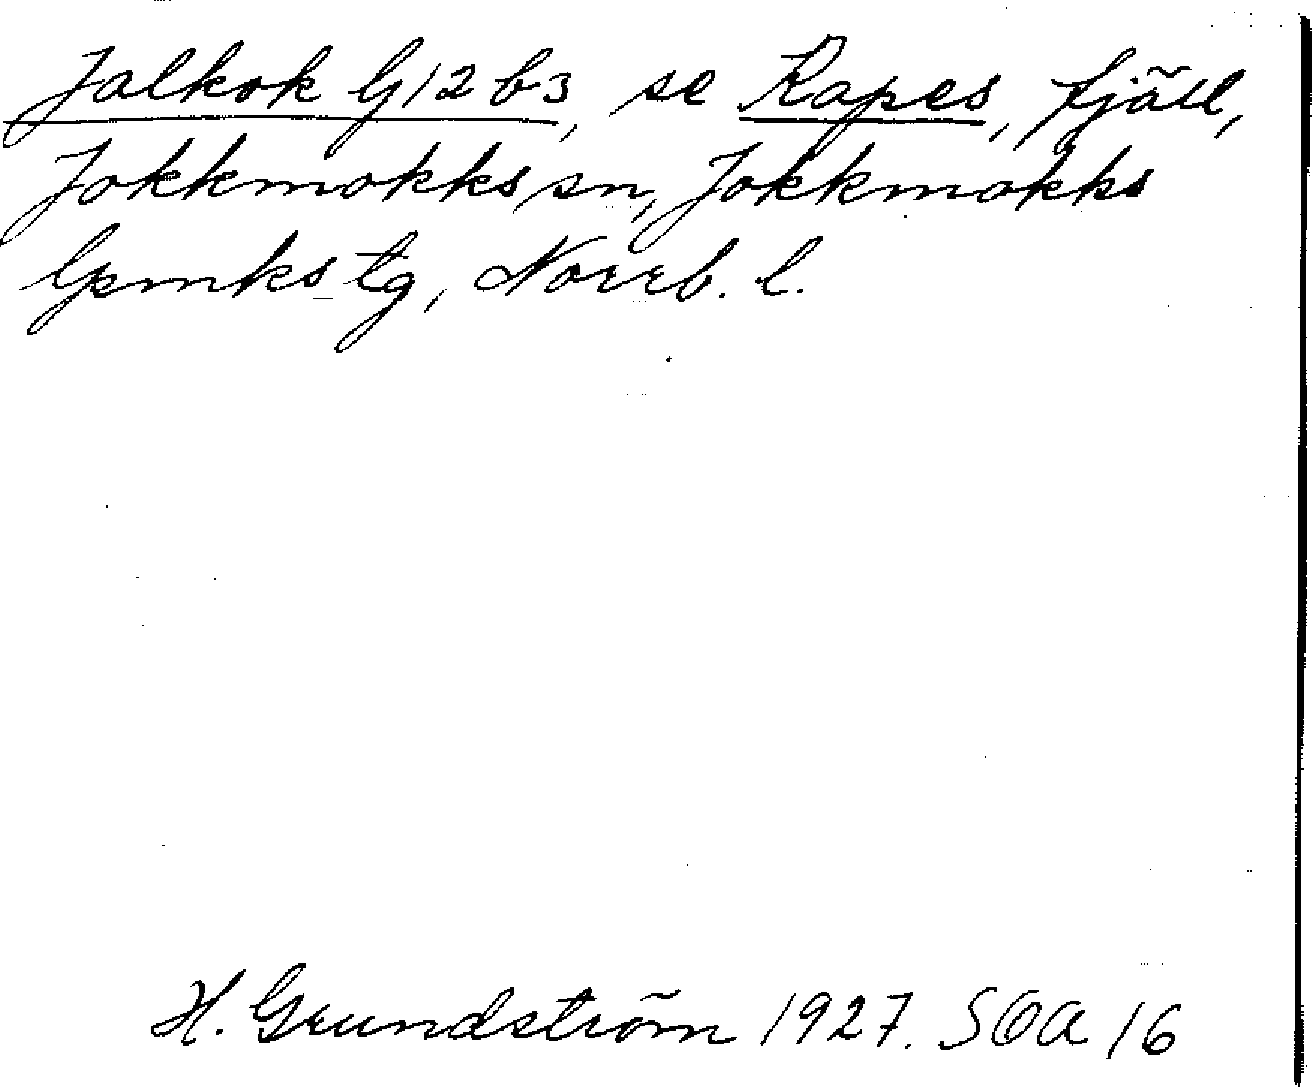 Jalkok G12b3, se Rapes, fjäll,
Jokkmokks sn, Jokkmokks
lpmks tg, Norrb. l.
H. Grundström 1927. SOA 16